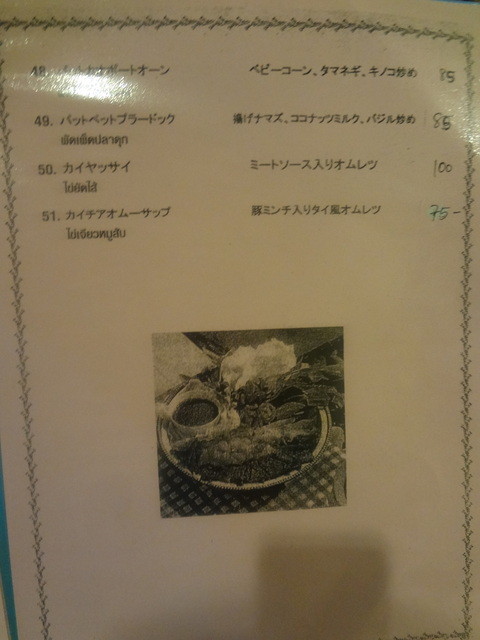 48. パットカオポートオーン ベビーコーン、タマネギ、キノコ炒め 85
49. パットペットプラードック 揚げナマズ、ココナッツミルク、バジル炒め 85
ผัดเผ็ดปลาดุก
50. カイヤッサイ ミートソース入りオムレツ 100
ไข่ยัดไส้
51. カイチアオムーサップ 豚ミンチ入りタイ風オムレツ 75-
ไข่เจียวหมูสับ